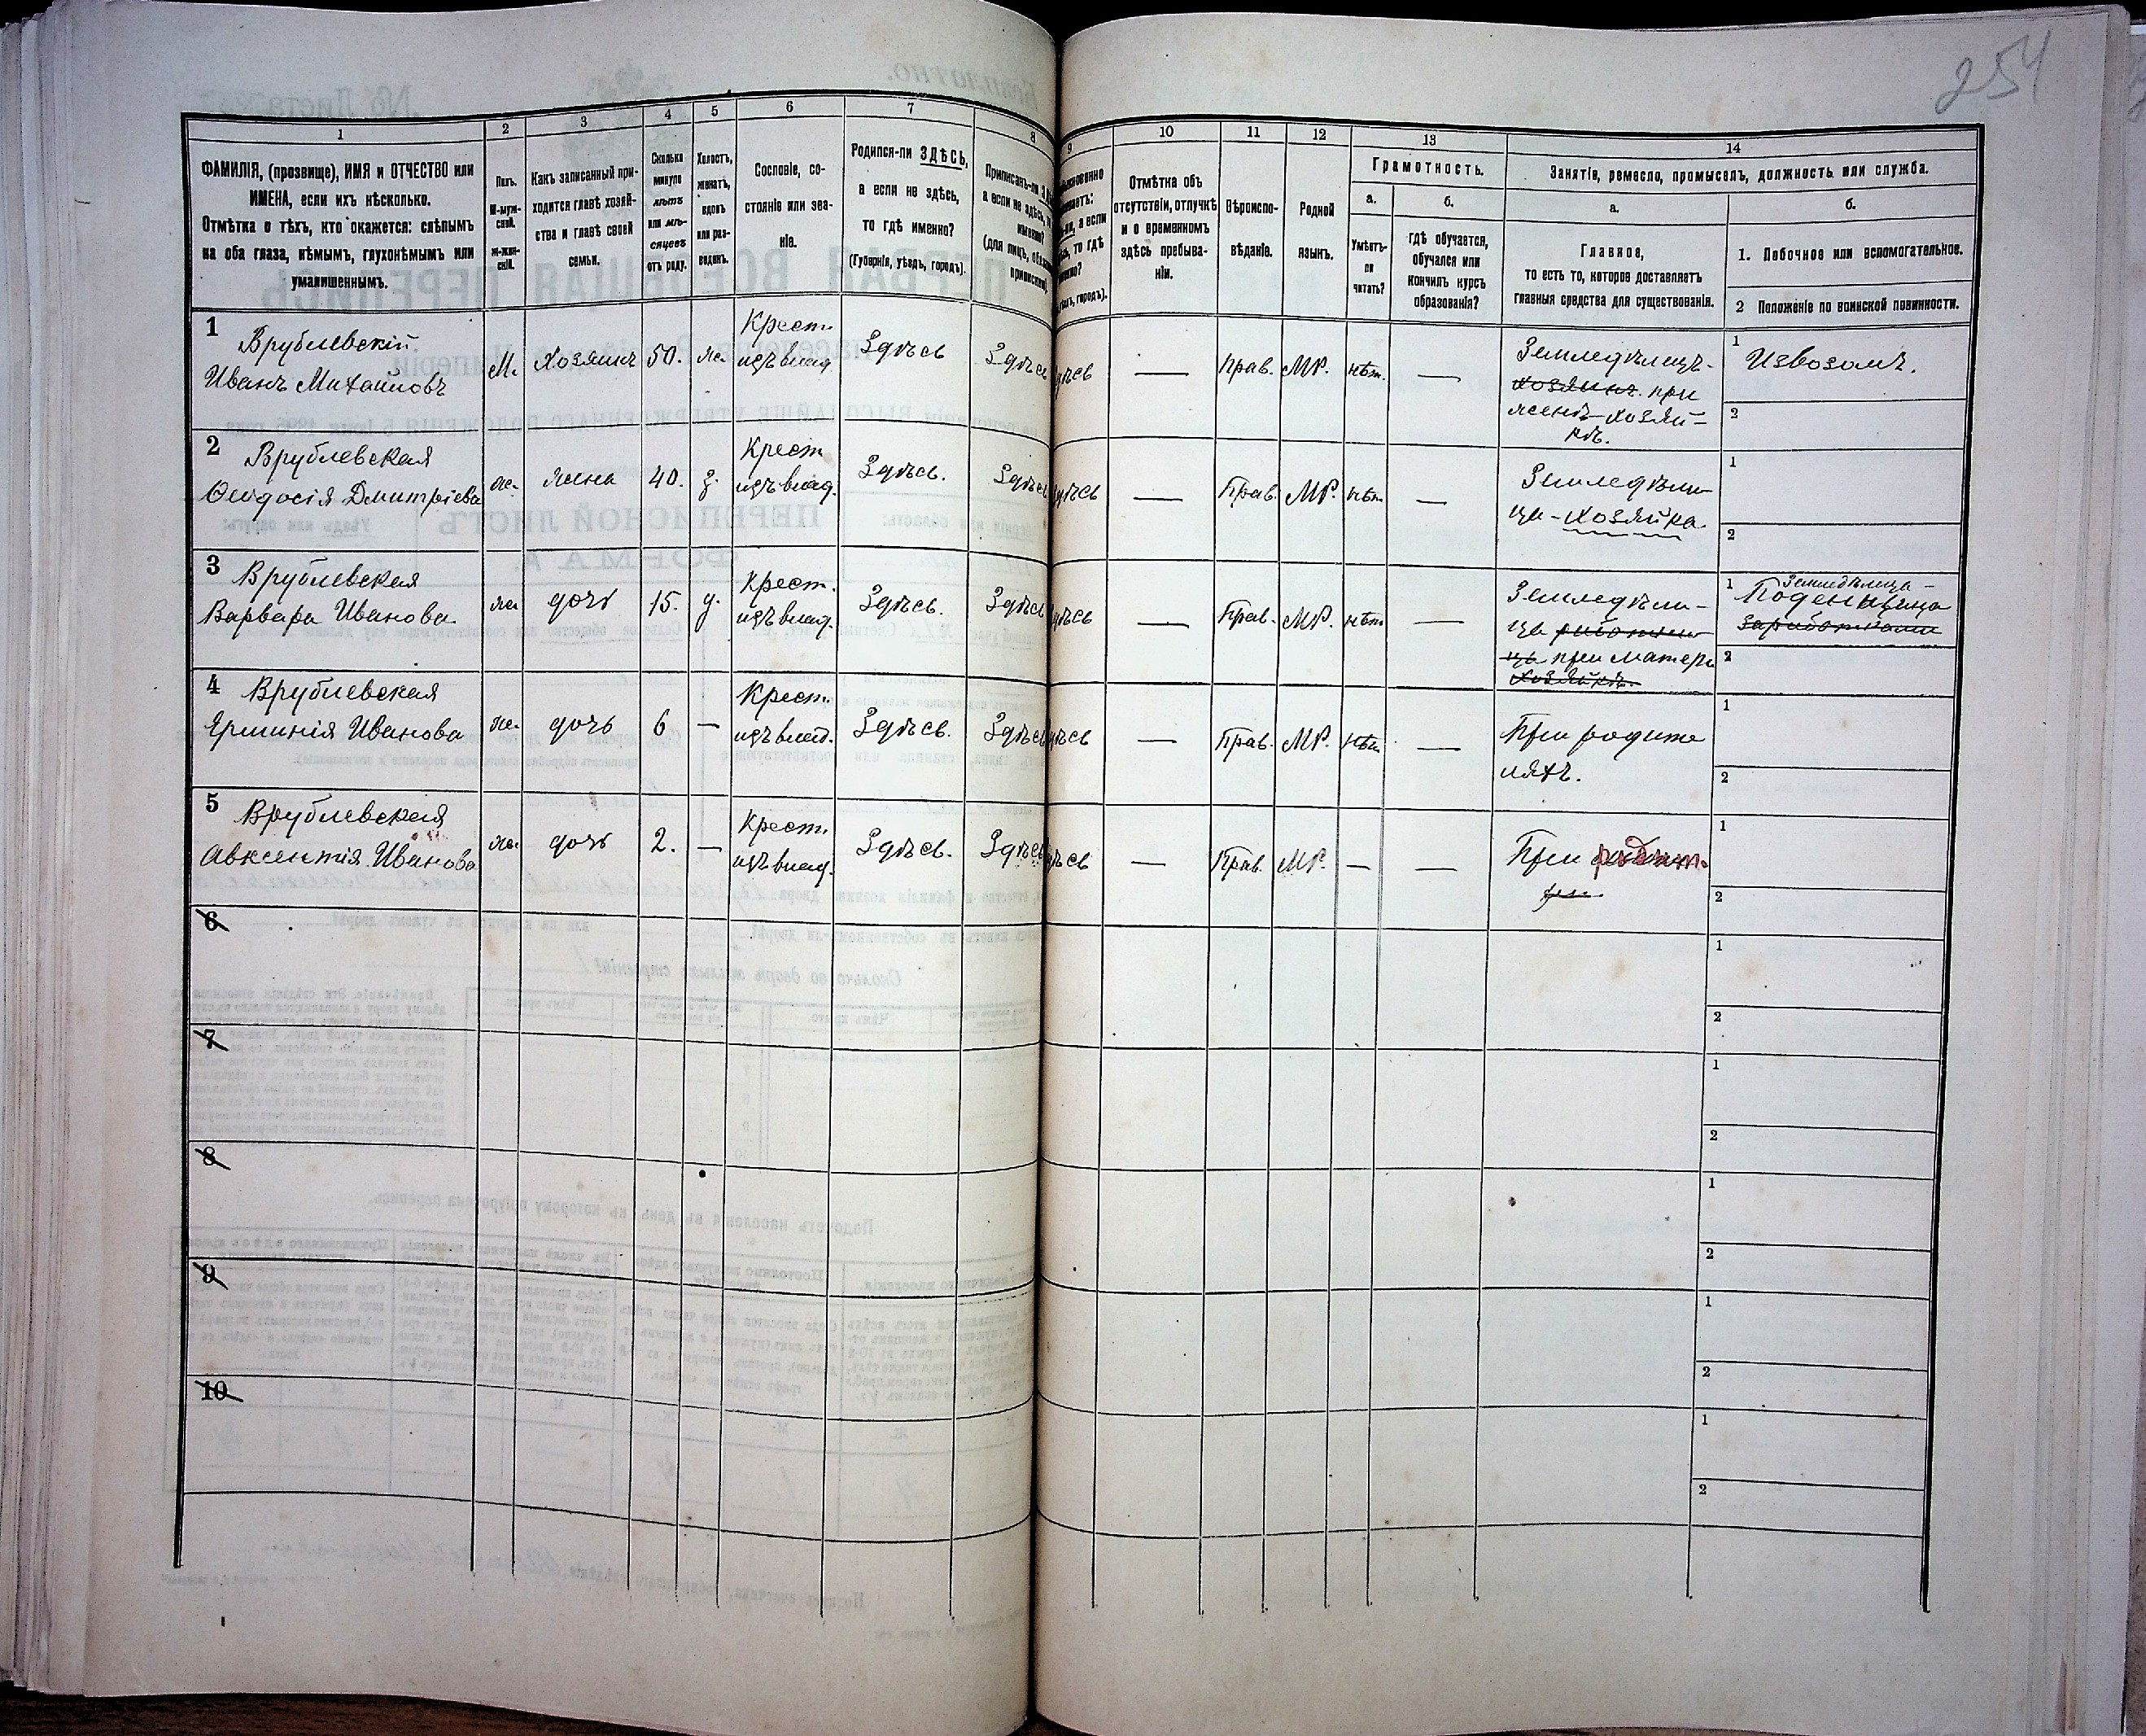 254
1
2
3
4
5
6
7
8
9
10
11
12
13
14
ФАМИЛІЯ, (прозвище), ИМЯ и ОТЧЕСТВО или
ИМЕНА, если ихъ нѣсколько.
Отмѣтка о тѣхъ, кто окажется: слѣпымъ
на оба глаза, нѣмымъ, глухонѣмымъ или
умалишеннымъ.
Полъ.
М-муж-
ской.
Ж-жен-
скій.
Какъ записанный при-
ходится главѣ хозяй-
ства и главѣ своей
семьи.
Сколько
минуло
лѣтъ
или мѣ-
сяцевъ
отъ роду.
Холостъ,
женатъ,
вдовъ
или раз-
веденъ.
Сословіе, со-
стояніе или зва-
ніе.
Родился-ли ЗДѢСЬ,
а если не здѣсь,
то гдѣ именно?
(Губернія, уѣздъ, городъ).
Приписанъ-ли
а если не здѣсь,
Отмѣтка объ
отсутствіи, отлучкѣ
и о временномъ
здѣсь пребыва-
ніи.
Вѣроиспо-
вѣданіе.
Родной
языкъ.
Грамотность.
а.
Умѣетъ-
ли
читать?
б.
гдѣ обучается,
обучался или
кончилъ курсъ
образованія?
Занятіе, ремесло, промыселъ, должность или служба.
а.
Главное,
то есть то, которое доставляетъ
главныя средства для существованія.
б.
1. Побочное или вспомогательное.
2 Положеніе по воинской повинности.
1 Врублевскій
Иванъ Михайловъ
М. Хозяинъ 50. ж. Крест. изъ влад. Здѣсь Здѣсь — Прав. МР. нѣт. —
Земледѣлецъ-
хозяинъ при
женѣ-хозяй-
кѣ.
1 Извозомъ.
2
2 Врублевская
Ѳеодосія Дмитріева
ж. жена 40. з. Крест изъ влад. Здѣсь. Здѣсь — Прав. МР. нѣт —
Земледѣли-
ца-хозяйка
1
2
3 Врублевская
Варвара Иванова
ж. дочь 15. д. Крест. изъ влад. Здѣсь. Здѣсь — Прав. МР. нѣт —
Земледѣли-
ца работни
ца при матери
хозяйкѣ.
1 Земледѣлица-
Поденщица
заработками
2
4 Врублевская
Ерминія Иванова
ж. дочь 6 — Крест. изъ влад. Здѣсь. Здѣсь — Прав. МР. нѣт —
При родите
ляхъ.
1
2
5 Врублевская
Авксентія Иванова
ж. дочь 2. — Крест. изъ влад. Здѣсь. Здѣсь — Прав. МР. — —
При родит.
1
2
6
1
2
7
1
2
8
1
2
9
1
2
10
1
2